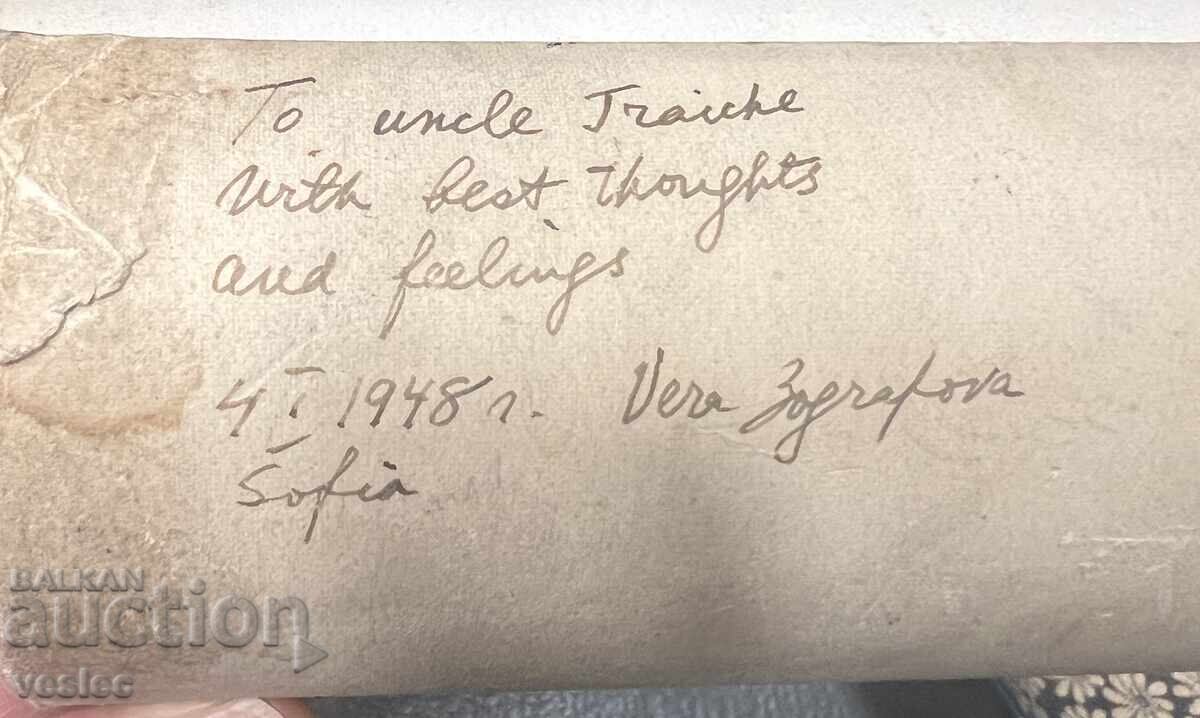 To uncle Traiche
with best thoughts
and feelings
4 I 1948 г. Vera Zografova
Sofia
BALKAN
auction
veslec